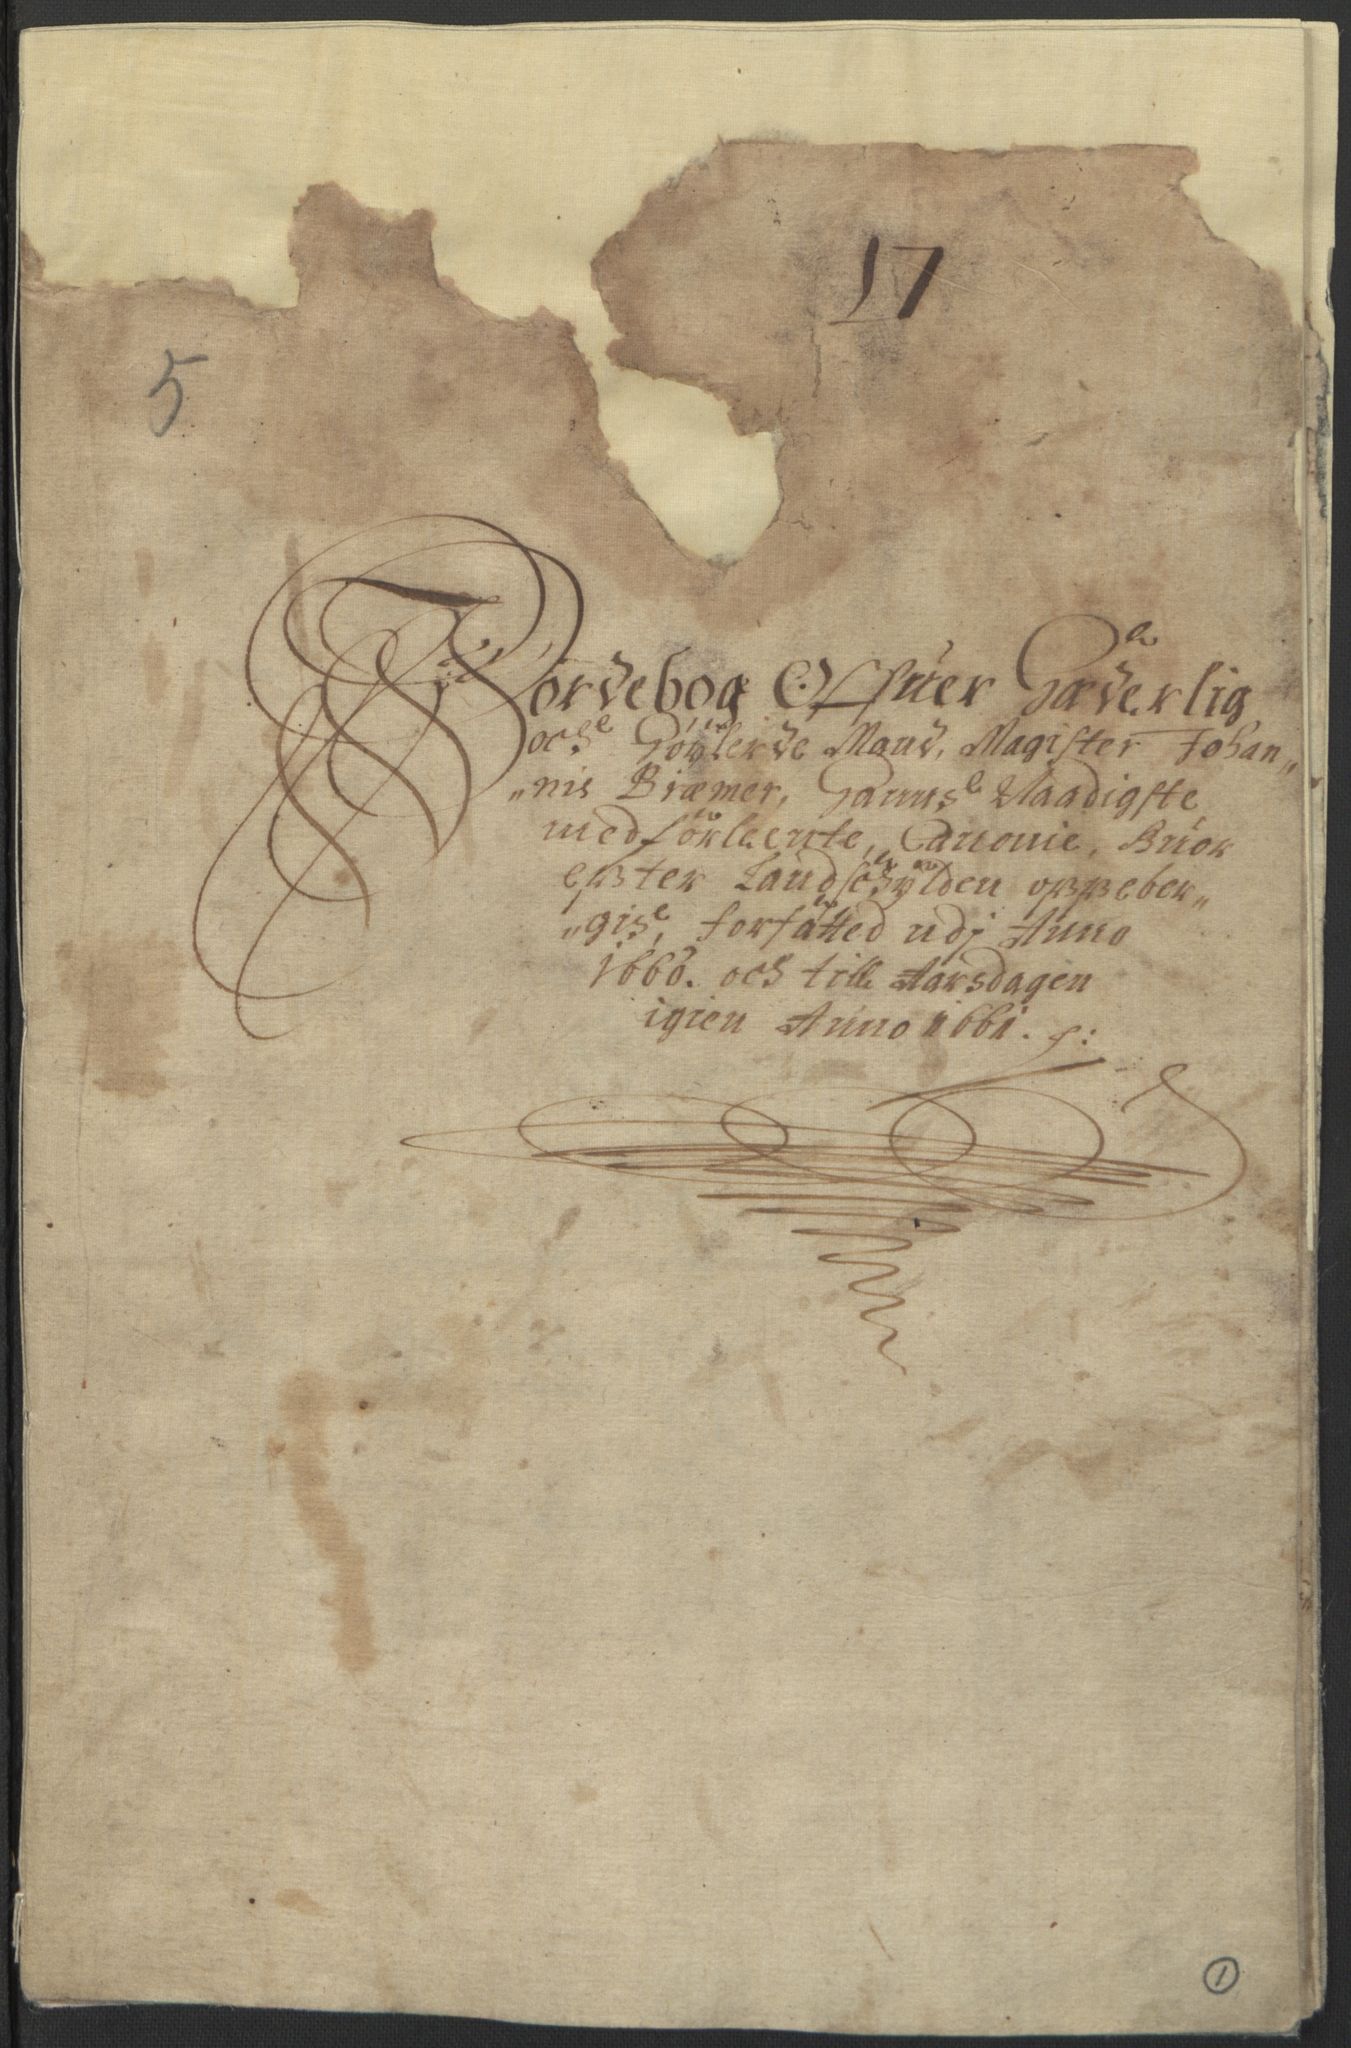 17
5
Jordebog Offuer Hæderlig
och Höÿlerde Mand, Magister Johan„
„nis Bræmer, Hanns Naadigste
medforleente, Canonie, huor
effter Landschÿlden oppeber„
„gis, forfatted udj Anno
1660. och till Aarsdagen
igien Anno 1661.
1